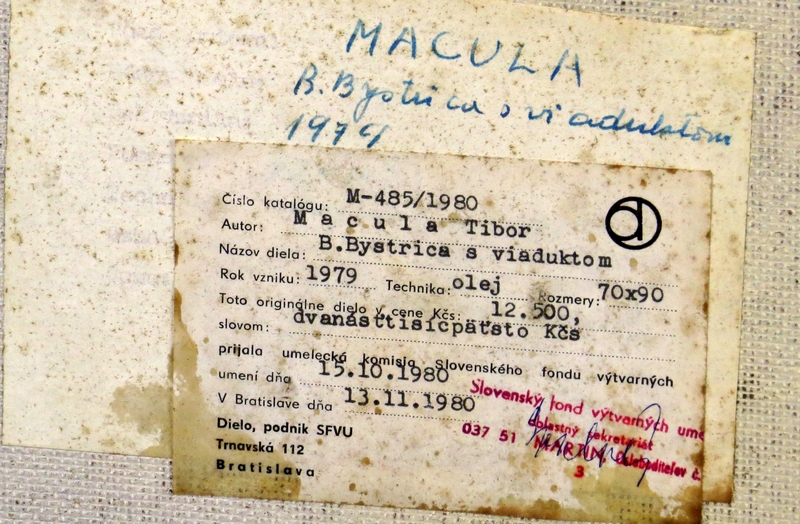 MACULA
B. Bystrica s viaduktom
1979
Číslo katalógu: M-485/1980
Autor: Macula Tibor
Názov diela: B.Bystrica s viaduktom
Rok vzniku: 1979 Technika: olej Rozmery: 70x90
Toto originálne dielo v cene Kčs: 12.500,
slovom: dvanásťtisícpäťsto Kčs
prijala umelecká komisia Slovenského fondu výtvarných
umení dňa 15.10.1980
V Bratislave dňa 13.11.1980
Dielo, podnik SFVU
Trnavská 112
Bratislava
Slovenský fond výtvarných ume
oblastný sekretariát
037 51 MARTIN, Osloboditeľov č.
3